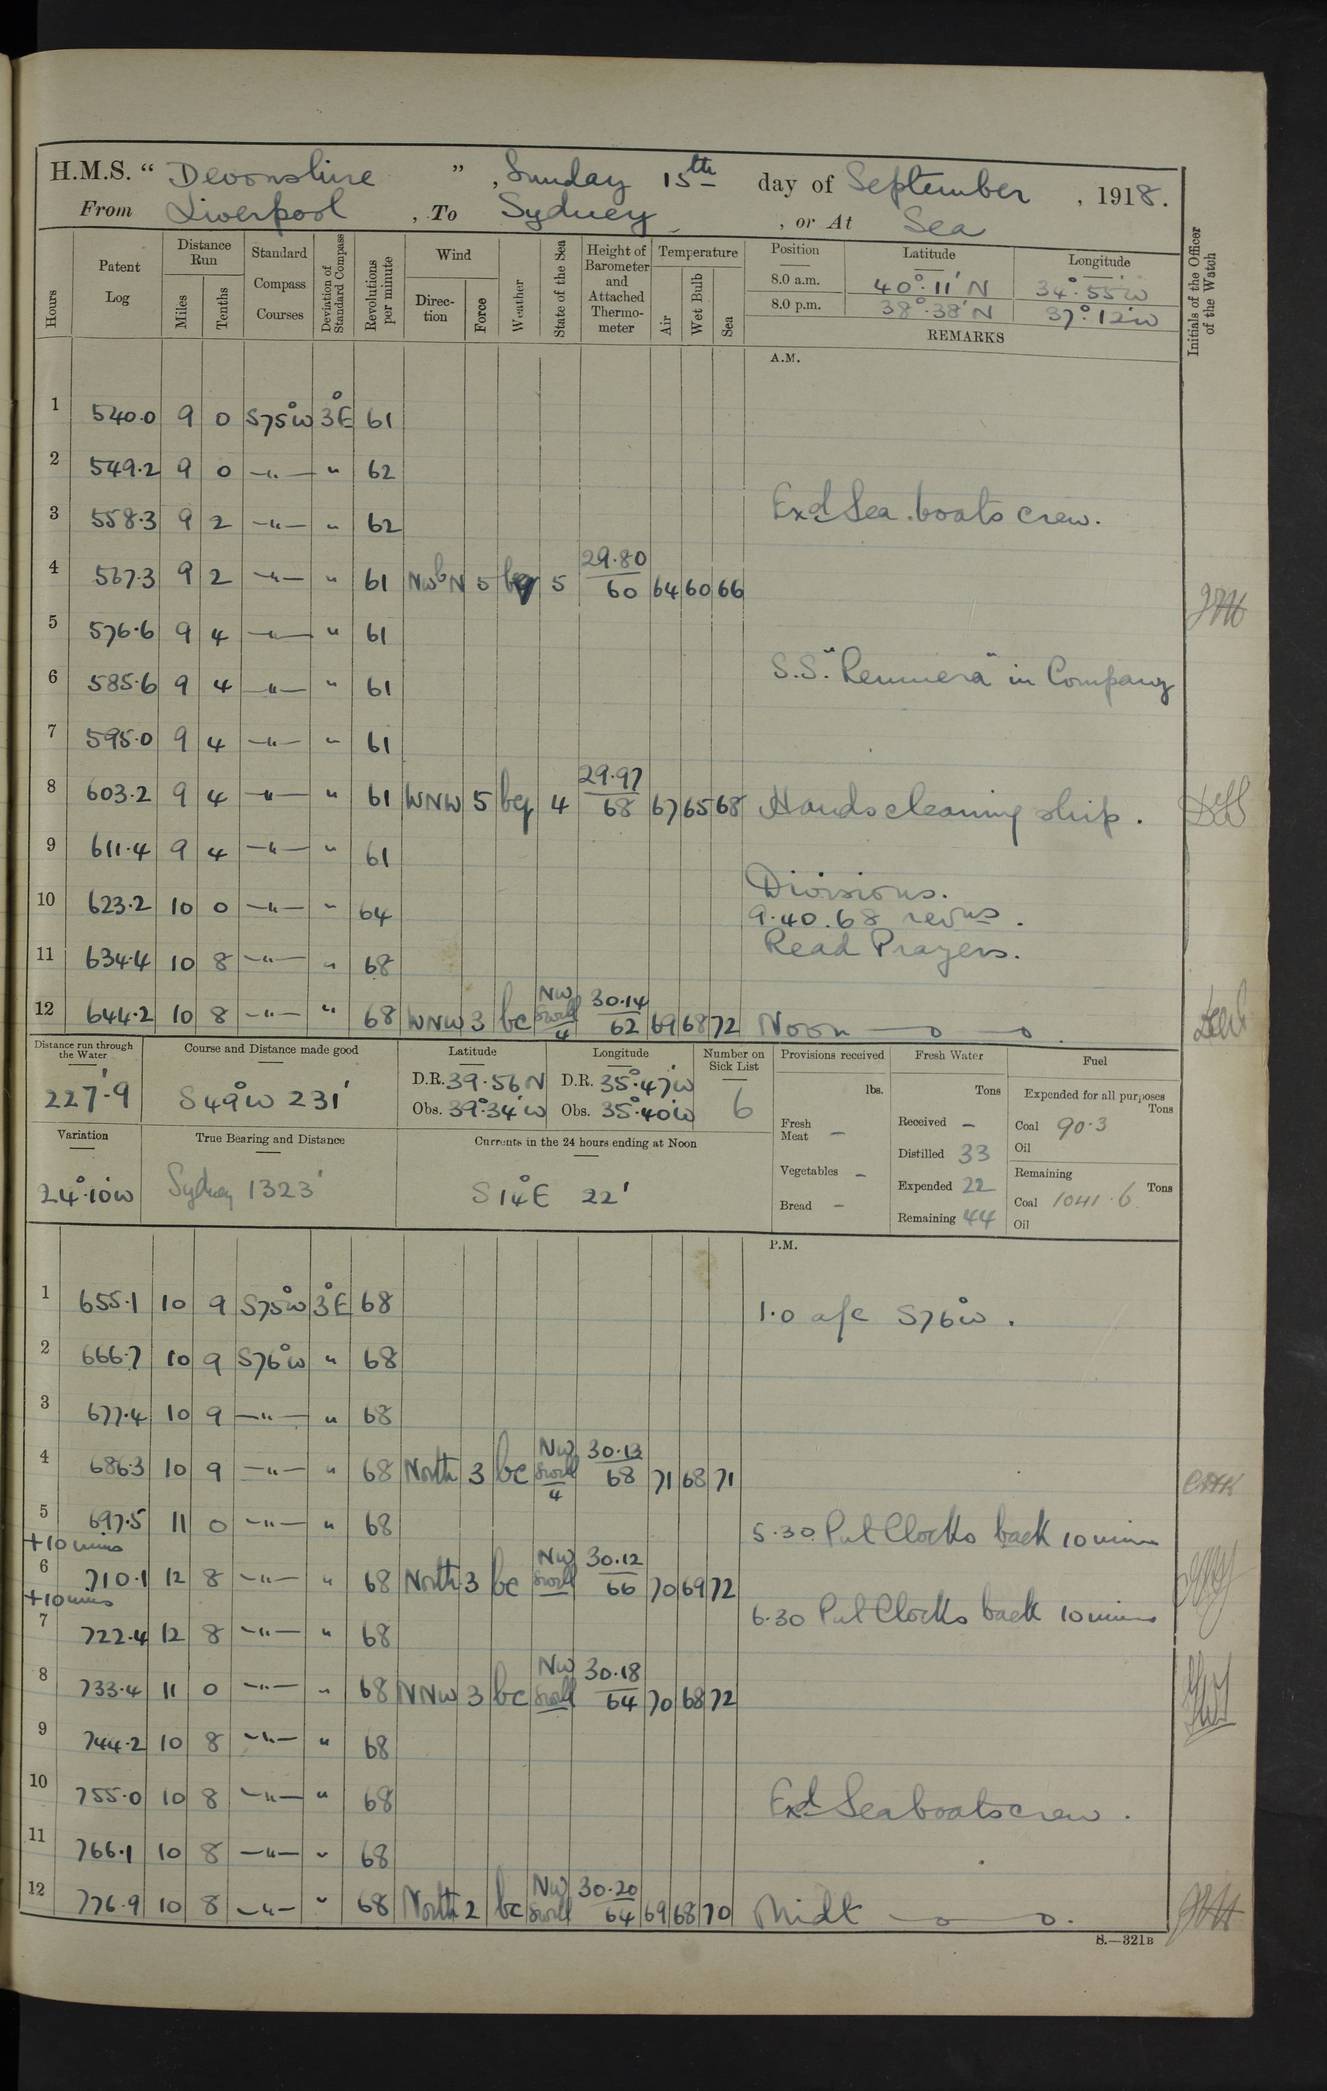 H.M.S. “ Devonshire ” , Sunday 15th day of September , 1918.
From Liverpool , To Sydney , or At Sea
Hours
Patent Log
Distance Run
Miles
Tenths
Standard Compass Courses
Deviation of Standard Compass
Revolutions per minute
Wind
Direc-tion
Force
Weather
State of the Sea
Height of Barometer and Attached Thermo-meter
Temperature
Air
Wet Bulb
Sea
Position Latitude Longitude
8.0 a.m. 40°.11' N 34°.55' W
8.0 p.m. 38°.38' N 37°.12' W
REMARKS
Initials of the Officer of the Watch
A.M.
1 540.0 9 0 S75°W 3°E 61
2 549.2 9 0 —"— " 62
3 558.3 9 2 —"— " 62 Exd Sea boats crew.
4 567.3 9 2 —"— " 61 NWbN 5 bcq 5 29.80 60 64 60 66
5 576.6 9 4 —"— " 61
6 585.6 9 4 —"— " 61 S.S. "Remuera" in Company
7 595.0 9 4 —"— " 61
8 603.2 9 4 —"— " 61 WNW 5 bcq 4 29.97 68 67 65 68 Hands cleaning ship.
9 611.4 9 4 —"— " 61
Divisions.
10 623.2 10 0 —"— " 64 9.40. 68 revns.
11 634.4 10 8 —"— " 68 Read Prayers.
12 644.2 10 8 —"— " 68 WNW 3 bc NW Swell 4 30.14 62 69 68 72 Noon
Distance run through the Water 227'.9
Course and Distance made good S 49°W 231'
Latitude D.R. 39.56 N Obs. 39°.34' W
Longitude D.R. 35°.47' W Obs. 35°.40' W
Number on Sick List 6
Provisions received lbs.
Fresh Meat –
Vegetables –
Bread –
Fresh Water Tons
Received –
Distilled 33
Expended 22
Remaining 44
Fuel
Expended for all purposes Tons
Coal 90.3
Oil
Remaining Tons
Coal 1041.6
Oil
Variation 24°.10' W
True Bearing and Distance Sydney 1323'
Currents in the 24 hours ending at Noon S 14°E 22'
P.M.
1 655.1 10 9 S75°W 3°E 68 1.0 a/c S76°W.
2 666.7 10 9 S76°W " 68
3 677.4 10 9 —"— " 68
4 686.3 10 9 —"— " 68 North 3 bc NW Swell 4 30.13 68 71 68 71
5 697.5 11 0 —"— " 68 5.30 Put Clocks back 10 mins
+10 mins
6 710.1 12 8 —"— " 68 North 3 bc NW Swell 30.12 66 70 69 72
+10 mins
6.30 Put Clocks back 10 mins
7 722.4 12 8 —"— " 68
8 733.4 11 0 —"— " 68 NNW 3 bc NW Swell 30.18 64 70 68 72
9 744.2 10 8 —"— " 68
10 755.0 10 8 —"— " 68 Exd Sea boats crew.
11 766.1 10 8 —"— " 68
12 776.9 10 8 —"— " 68 North 2 bc NW Swell 30.20 64 69 68 70 Midt
S.—321B